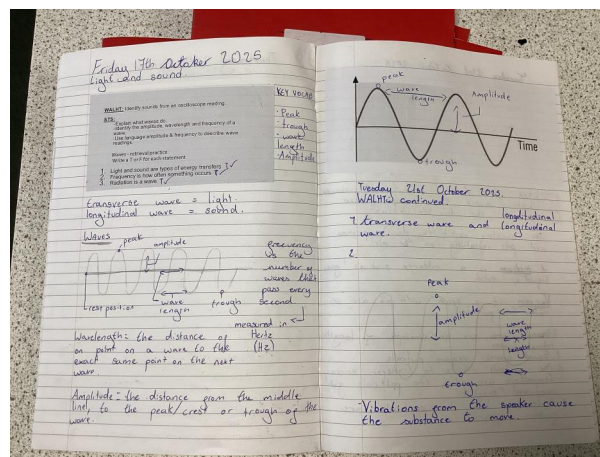 Friday 17th October 2025
Light and sound.
WALHT: Identify sounds from an oscilloscope reading.
BTS:
-Explain what waves do
-Identify the amplitude, wavelength and frequency of a
wave.
-Use language amplitude & frequency to describe wave
readings.
Waves - retrieval practice
Write a T or F for each statement.
1. Light and sound are types of energy transfers. T
2. Frequency is how often something occurs T
3. Radiation is a wave. T
KEY VOCAB
· Peak
· trough
· wave
length
· Amplitude
transverse wave = light.
longitudinal wave = sound.
WAVES
peak
amplitude
rest position
wave
length
trough
frequency
is the
number of
waves that
pass every
second
measured in
Hertz
(Hz)
Wavelength: the distance of
on point on a wave to the
exact same point on the next
wave.
Amplitude: the distance from the middle
line, to the peak/crest or trough of the
wave.
peak
wave
length
Amplitude
trough
Time
Tuesday 21st October 2025.
WALHT: continued.
longitudinal
1. transverse wave and longitudinal
wave.
2
Peak
amplitude
wave
length
length
trough
-Vibrations from the speaker cause
the substance to move.